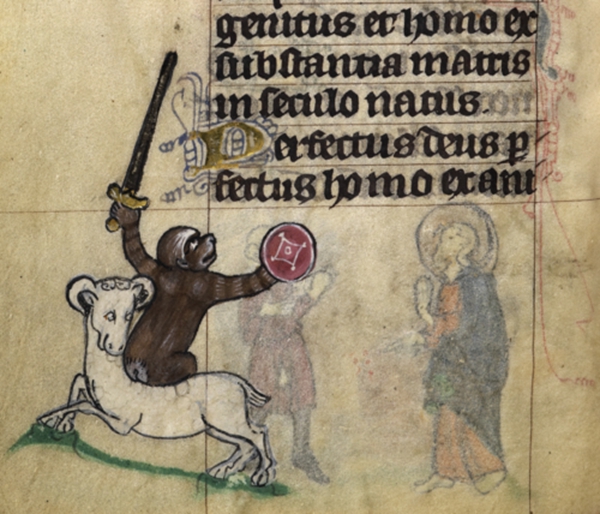 genitus et homo ex
substantia matris
in seculo natus.
Perfectus deus p
fectus homo exani